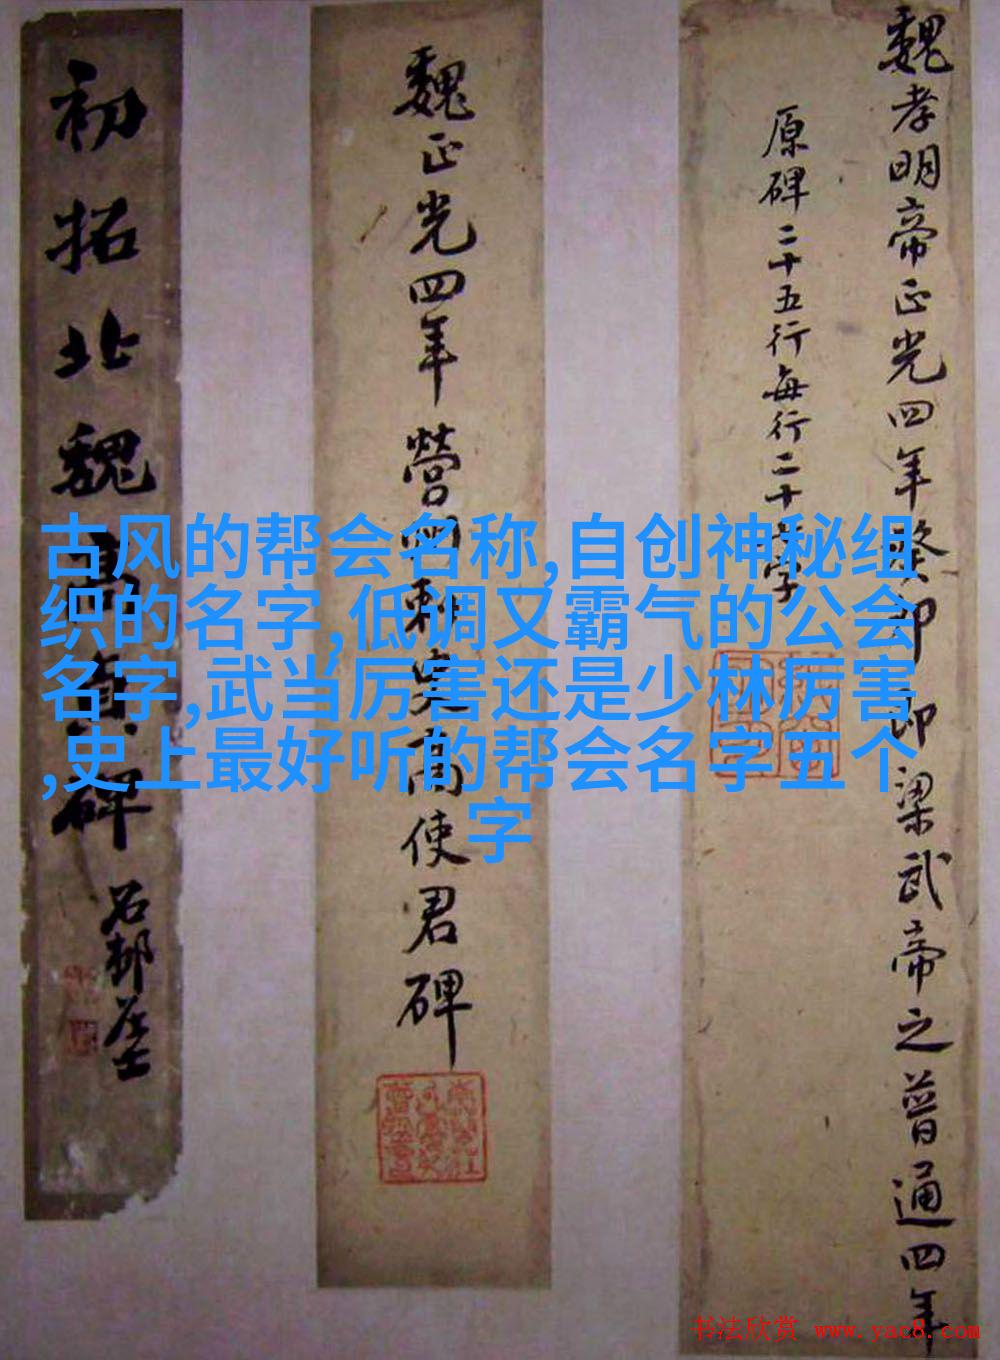 魏孝明帝正光四年癸卯即梁武帝之普通四年
原碑二十五行每行二十字
魏正光四年營州刺史高使君碑
初拓北魏高貞碑
石邨居士
古风的帮会名称,自创神秘组
织的名字,低调又霸气的公会
名字,武当厉害还是少林厉害
,史上最好听的帮会名字五个
字
书法欣赏 www.yac8.com